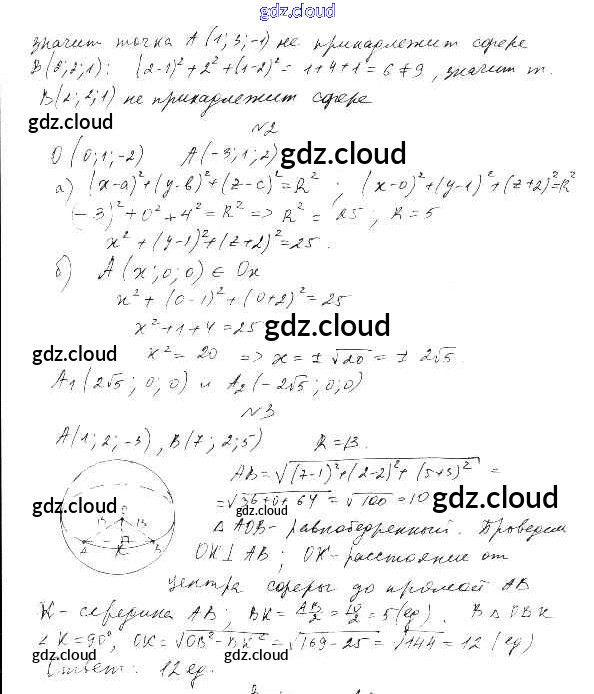 gdz.cloud
значит точка A(1; 3; -1) не принадлежит сфере
B(2; 2; 1): (2-1)² + 2² + (1-2)² = 1+4+1 = 6 ≠ 9, значит т.
B(2; 2; 1) не принадлежит сфере
gdz.cloud
№2
O(0; 1; -2) A(-3; 1; 2) gdz.cloud
а) (x-a)² + (y-b)² + (z-c)² = R² ; (x-0)² + (y-1)² + (z+2)² = R²
(-3)² + 0² + 4² = R² => R² = 25 ; R = 5
x² + (y-1)² + (z+2)² = 25.
б) A(x; 0; 0) ∈ Ox
x² + (0-1)² + (0+2)² = 25
x² + 1 + 4 = 25 gdz.cloud
gdz.cloud x² = 20 => x = ± √20 = ± 2√5.
A₁(2√5; 0; 0) и A₂(-2√5; 0; 0)
№3
A(1; 2; -3), B(7; 2; 5) R = 13.
AB = √(7-1)² + (2-2)² + (5+3)² =
= √36+0+64 = √100 = 10 gdz.cloud
gdz.cloud gdz.cloud
O
13 13
A K B
△ AOB - равнобедренный. Проведём
OK ⊥ AB ; OK - расстояние от
gdz.cloud
центра сферы до прямой AB
K - середина AB ; BK = AB/2 = 10/2 = 5 (ед). В △ OBK
∠K = 90°, OK = √OB² - BK² = √169 - 25 = √144 = 12 (ед)
gdz.cloud gdz.cloud
Ответ: 12 ед.